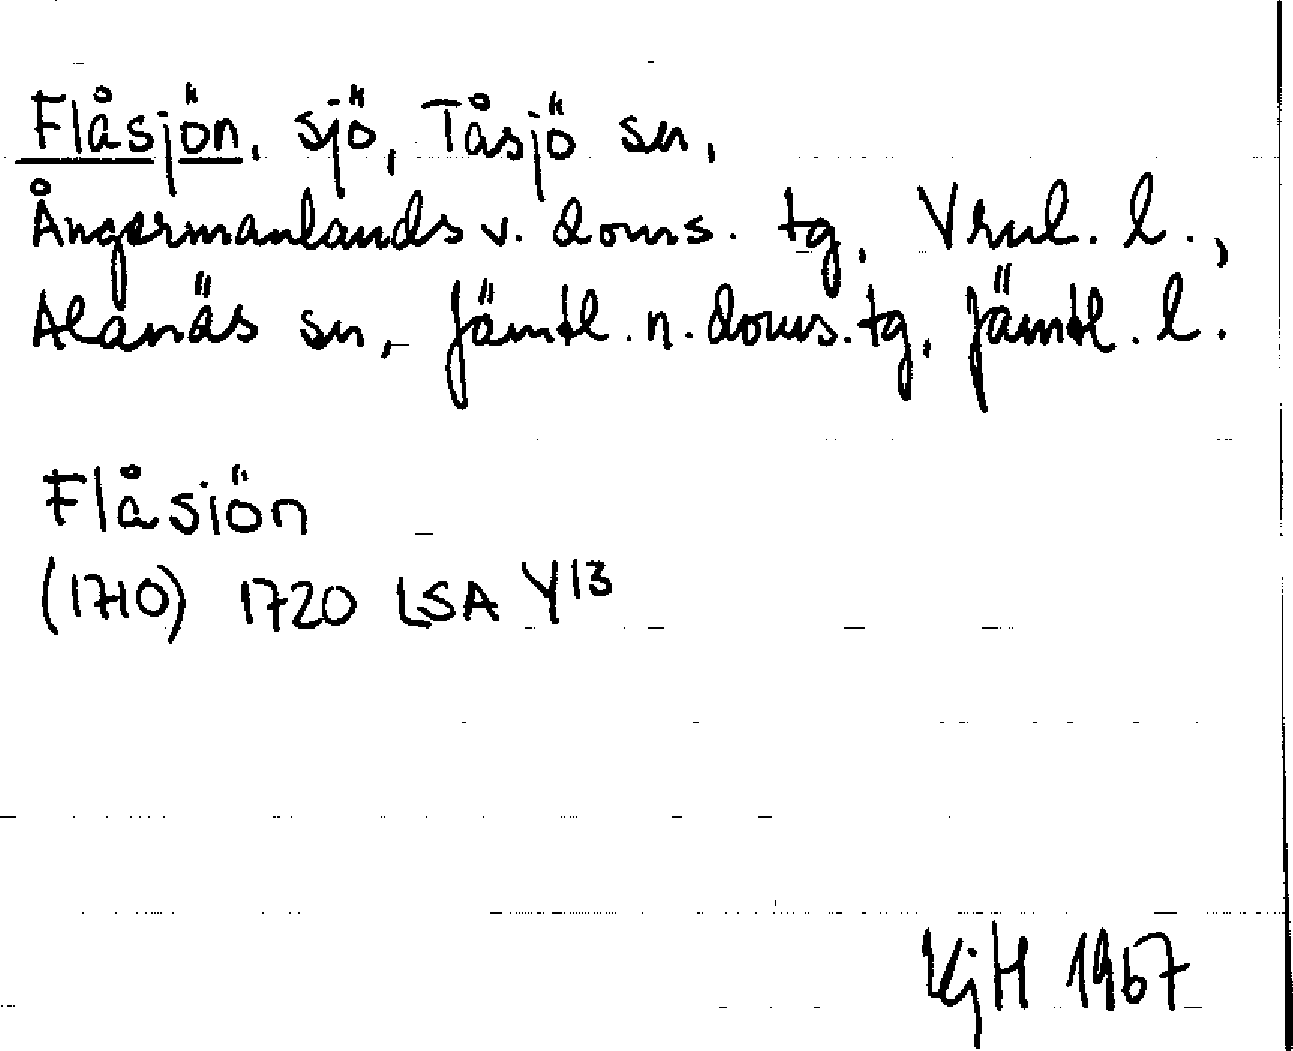 Flåsjön, sjö, Tåsjö sn,
Ångermanlands v. doms. tg, Vrnl. l.,
Alanäs sn, Jämtl. n. doms. tg, Jämtl. l.
Flåsiön
(1710) 1720 LSA Y13
KjH 1967